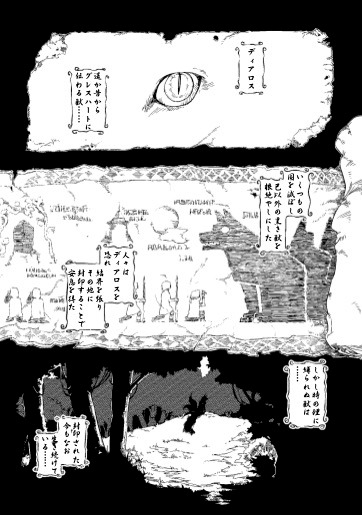 ディアロス
遥か昔から
グレスハートに
伝わる獣……
いくつもの
国を滅ぼし
己以外の黒き獣を
根絶やしにした
人々は
ディアロスを
恐れ
結界を張り
その地に
封印することで
安息を得た
しかし時の理に
縛られぬ獣は
……
封印された
今もなお
生き続けて
いる……